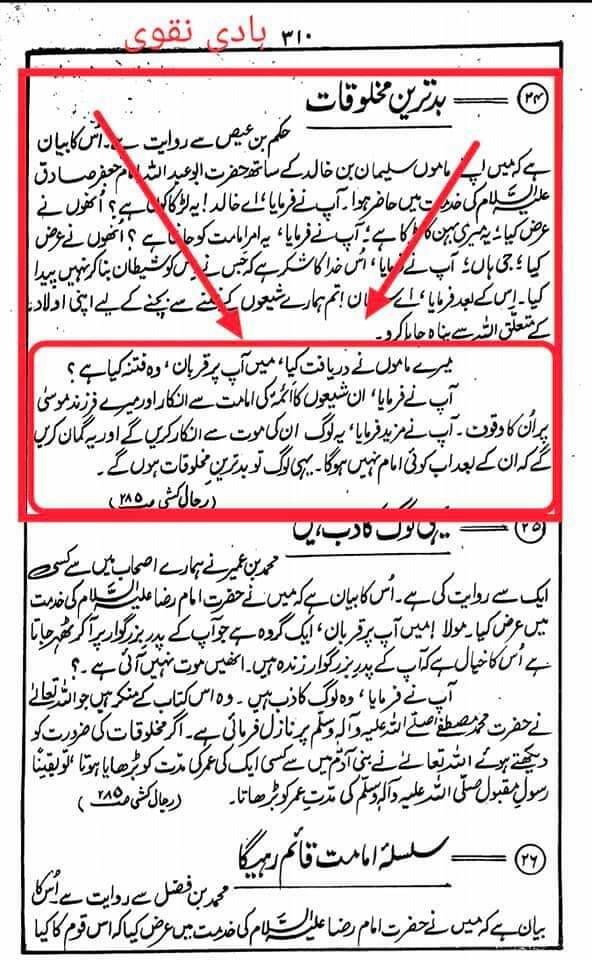 ۳۱۰ ہادی نقوی
۲۴ بدترین مخلوقات
حکم بن عیص سے روایت ہے۔ اُس کا بیان
ہے کہ میں اپنے ماموں سلیمان بن خالد کے ساتھ حضرت ابو عبد اللہ امام جعفر صادق
علیہ السّلام کی خدمت میں حاضر ہوا۔ آپ نے فرمایا، اے خالد! یہ لڑکا کون ہے؟ اُنھوں نے
عرض کیا؛ یہ میری بہن کا لڑکا ہے؛ آپ نے فرمایا، یہ امرِ امامت کو جانتا ہے؟ اُنھوں نے عرض
کیا؛ جی ہاں؛ آپ نے فرمایا، اُس خدا کا شکر ہے کہ جس نے اِس کو شیطان بنا کر نہیں پیدا
کیا۔ اِس کے بعد فرمایا، اے سلیمان! تم ہمارے شیعوں کے فتنے سے بچنے کے لیے اپنی اولاد
کے متعلّق اللہ سے پناہ چاہا کرو۔
میرے ماموں نے دریافت کیا، میں آپ پر قربان، وہ فتنہ کیا ہے؟
آپ نے فرمایا، ان شیعوں کا ائمّہؑ کی امامت سے انکار اور میرے فرزند موسیٰ
پر اُن کا وقوف۔ آپ نے مزید فرمایا، یہ لوگ ان کی موت سے انکار کریں گے اور یہ گمان کریں
گے کہ ان کے بعد اب کوئی امام نہیں ہوگا۔ یہی لوگ تو بدترین مخلوقات ہوں گے۔
(رجال کشی صـ ۲۸۵)
۲۵ یہی لوگ کاذب ہیں
محمد بن عمیر نے ہمارے اصحاب میں سے کسی
ایک سے روایت کی ہے۔ اُس کا بیان ہے کہ میں نے حضرت امام رضا علیہ السّلام کی خدمت
میں عرض کیا۔ مولا! میں آپ پر قربان، ایک گروہ ہے جو آپ کے پدرِ بزرگوار پر آکر ٹھہر جاتا
ہے اُس کا خیال ہے کہ آپ کے پدرِ بزرگوار زندہ ہیں۔ انھیں موت نہیں آئی ہے۔؟
آپ نے فرمایا، وہ لوگ کاذب ہیں۔ وہ اس کتاب کے منکر ہیں جو اللہ تعالےٰ
نے حضرت محمد مصطفےٰ صلّے اللہ علیہ و آلہ وسلّم پر نازل فرمائی ہے۔ اگر مخلوقات کی ضرورت کو
دیکھتے ہوئے اللہ تعالےٰ نے بنی آدمؑ میں سے کسی ایک کی عمر کی مدّت کو بڑھایا ہوتا، تو یقیناً
رسولِ مقبول صلّی اللہ علیہ و آلہ وسلّم کی مدّتِ عمر کو بڑھاتا۔ (رجال کشی صـ ۲۸۵)
۲۶ سلسلۂ امامت قائم رہیگا
محمد بن فضل سے روایت ہے۔ اُس کا
بیان ہے کہ میں نے حضرت امام رضا علیہ السّلام کی خدمت میں عرض کیا کہ اس قوم کا کیا